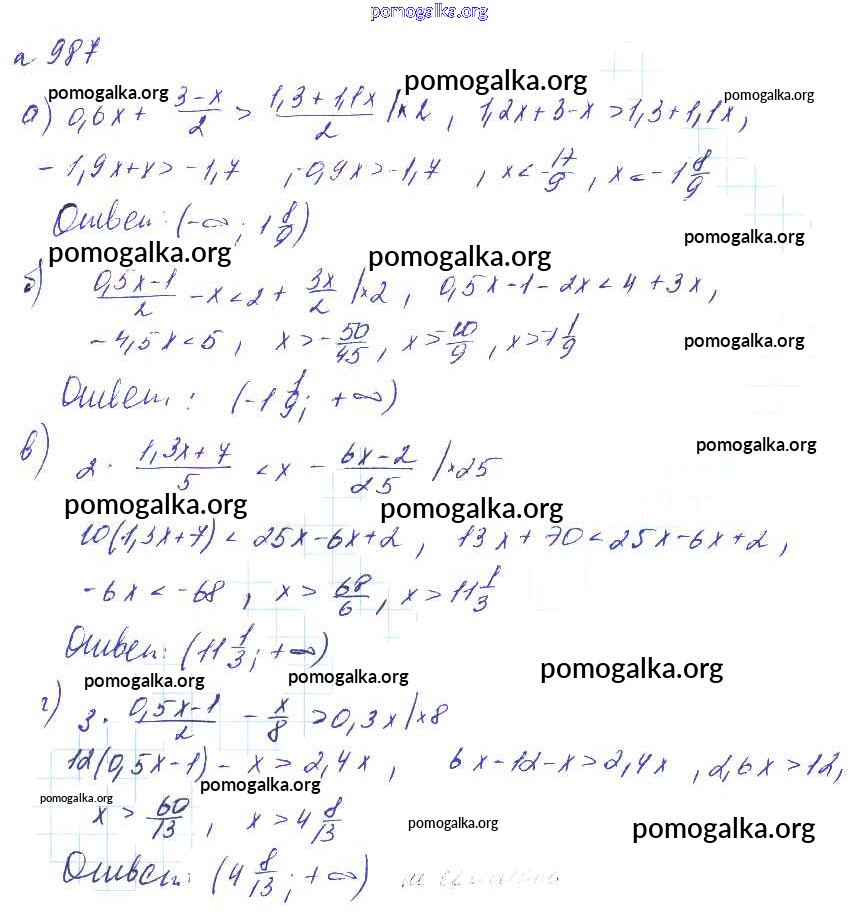 pomogalka.org
n 987
pomogalka.org pomogalka.org pomogalka.org
а) 0,6x + (3-x)/2 > (1,3+1,1x)/2 |×2, 1,2x+3-x > 1,3+1,1x,
- 1,9x+x > -1,7 ; -0,9x > -1,7 , x < 17/9, x < -1 8/9
Ответ: (-∞; 1 8/9)
pomogalka.org pomogalka.org pomogalka.org
б) (0,5x-1)/2 - x < 2 + 3x/2 |×2, 0,5x-1-2x < 4+3x,
-4,5x < 5, x > -50/45, x > -10/9, x > -1 1/9
pomogalka.org
Ответ: (-1 1/9; +∞)
pomogalka.org
в) 2 · (1,3x+7)/5 < x - (6x-2)/25 |×25
pomogalka.org pomogalka.org
10(1,3x+7) < 25x-6x+2, 13x+70 < 25x-6x+2,
-6x < -68, x > 68/6, x > 11 1/3
Ответ: (11 1/3; +∞)
pomogalka.org pomogalka.org pomogalka.org
г) 3 · (0,5x-1)/2 - x/8 > 0,3x |×8
12(0,5x-1) - x > 2,4x, 6x-12-x > 2,4x, 2,6x > 12,
pomogalka.org pomogalka.org
x > 60/13, x > 4 8/13
pomogalka.org pomogalka.org
Ответ: (4 8/13; +∞)